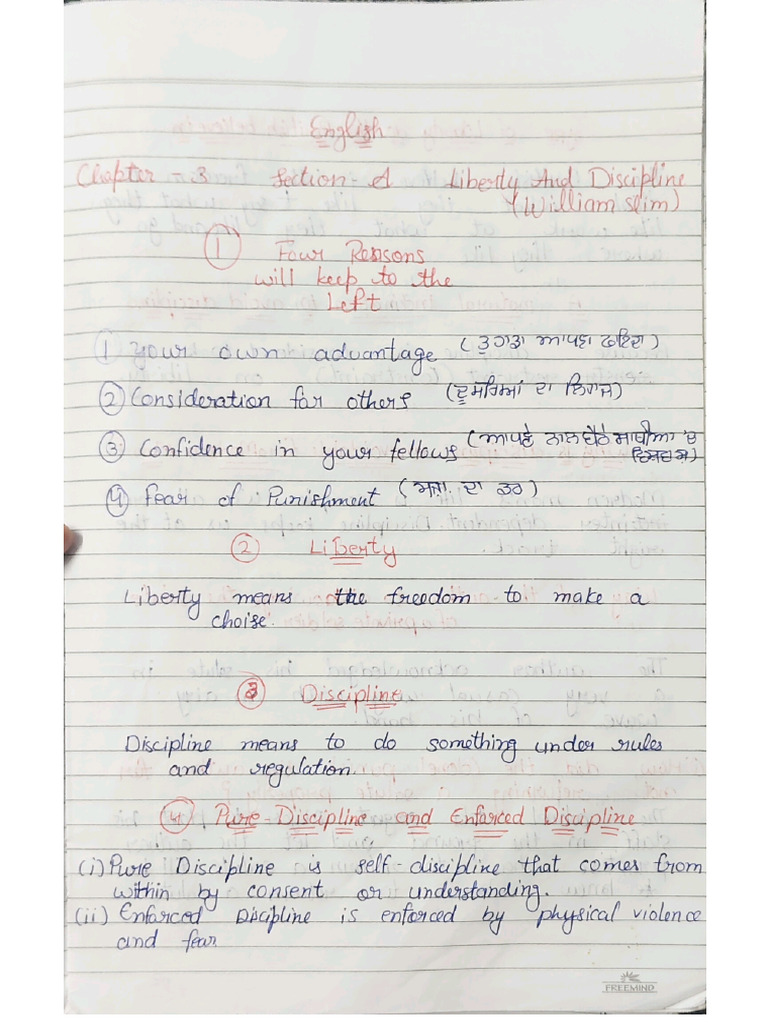 English
Chapter - 3 Section - A Liberty And Discipline
(William Slim)
① Four Reasons
will keep to the
Left
① your own advantage (ਤੁਹਾਡਾ ਆਪਣਾ ਫਾਇਦਾ)
② Consideration for others (ਦੂਸਰਿਆਂ ਦਾ ਲਿਹਾਜ)
③ Confidence in your fellows (ਆਪਣੇ ਨਾਲ ਬੈਠੇ ਸਾਥੀਆ 'ਚ
④ Fear of Punishment (ਸਜਾ ਦਾ ਡਰ)
② Liberty
Liberty means the freedom to make a
choise.
③ Discipline
Discipline means to do something under rules
and regulation.
④ Pure-Discipline and Enforced Discipline
(i) Pure Discipline is self-discipline that comes from
within by consent or understanding.
(ii) Enforced Discipline is enforced by physical violence
and fear
FREEMIND